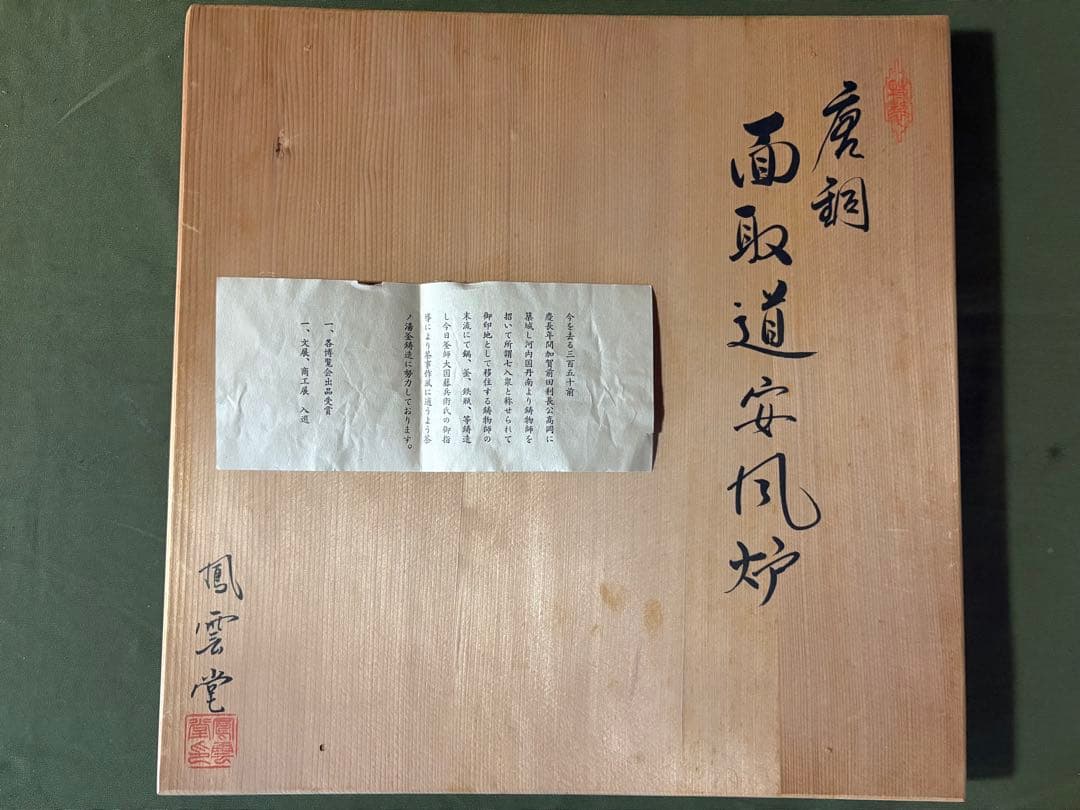 唐銅
面取道安風炉
今を去る三百五十前
慶長年間加賀前田利長公高岡に
築城し河内国丹南より鋳物師を
招いて所謂七人衆と称せられて
御印地として移住する鋳物師の
末流にて鍋、釜、鉄瓶、等鋳造
し今日釜師大国藤兵衛氏の御指
導により茶事作風に適うよう茶
ノ湯釜鋳造に努力しております。
一、各博覧会出品受賞
一、文展、商工展 入選
鳳雲堂
鳳雲堂印